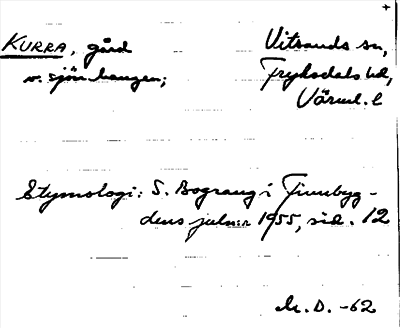 KURRA, gård
Vitsands sn,
v. sjön Laugen;
Fryksdals hd,
Värml. l
Etymologi: S. Bograng i Finnbyg-
dens julnr 1955, sid. 12
M. D. -62